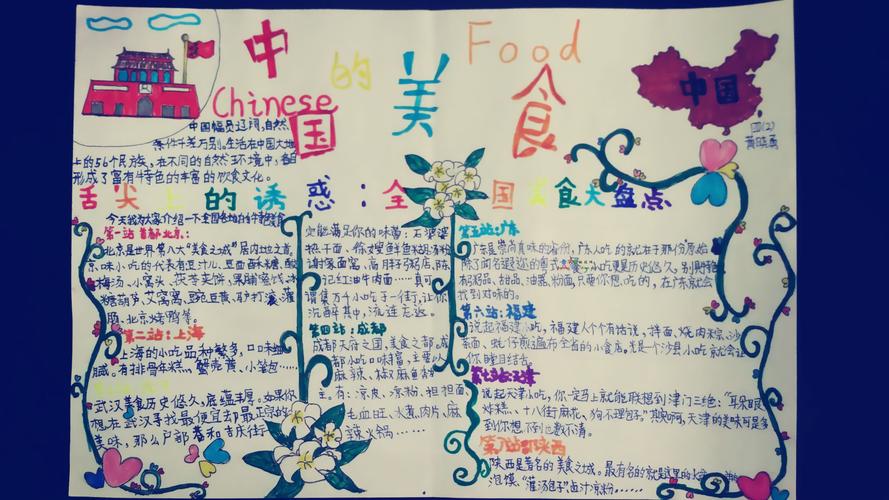 中国的美食
Chinese Food
中国
四(2)
中国幅员辽阔,自然
条件千差万别。生活在中国大地
上的56个民族,在不同的自然环境中,各自
形成了富有特色的丰富的饮食文化。
舌尖上的诱惑:全国美食大盘点
今天我为大家介绍一下全国各地的
第一站 首都北京:
北京是世界第八大“美食之城”居内地之首。
京味小吃的代表有豆汁儿、豆面酥糖、酸
梅汤、小窝头、茯苓夹饼、果脯蜜饯、冰
糖葫芦、艾窝窝、豌豆黄、驴打滚、灌
肠、北京烤鸭等。
第二站:上海
上海的小吃品种繁多,口味
有排骨年糕、蟹壳黄、小笼包……
武汉美食历史悠久、底蕴丰厚。如果你
想在武汉寻找最便宜却最正宗的
美味,那么户部巷和吉庆街一
定能满足你的味蕾:石婆婆
热干面、徐嫂鲜鱼糊汤粉
谢家面窝、高胖子粥店、陈
记红油牛肉面……真可
谓集万千小吃于一街,让你
沉醉其中,流连忘返。
第四站:成都
成都天府之国,美食之都。成
都小吃口味富,主要以
麻辣、椒麻鱼香
主。有:凉皮、凉粉、担担面、
毛血旺、水煮肉片、麻
辣火锅……
第五站:广东
广东是崇尚真味的省份,广东人吃的就在于那份原始
除了闻名遐迩的粤式
小吃更是历史悠久,别具特色
粉粥粉、甜品、油器、粉面,只要你想吃的,在广东就会
找到对味的。
第六站:福建
说起福建小吃,福建人个个有话说,拌面、烧肉粽、沙
茶面、蚝仔煎遍布全省的小食店。光是一个沙县小吃就会让
你瞠目结舌。
第七站:天津
说起天津小吃,你一定马上就能联想到津门三绝:“耳朵眼
炸糕、十八街麻花、狗不理包子。”其实啊,天津的美味可是多
到你想不到也数不清。
第八站:陕西
陕西是著名的美食之城。最有名的就是这里的
泡馍、“灌汤包子”卤汁凉粉……